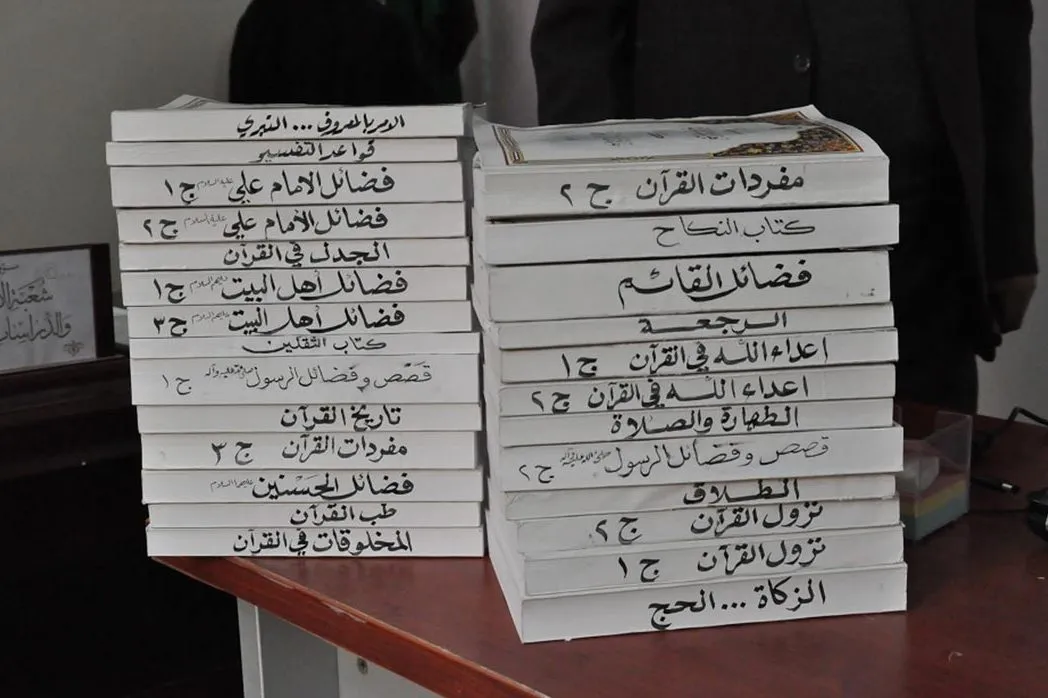 الامر بالمعروف ... التبري
قواعد التفسير
فضائل الامام علي عليه السلام ج ١
فضائل الأمام علي عليه السلام ج ٢
الجدل في القرآن
فضائل أهل البيت عليهم السلام ج ١
فضائل أهل البيت عليهم السلام ج ٣
كتاب الثقلين
قصص وفضائل الرسول صلى الله عليه وآله ج ١
تاريخ القرآن
مفردات القرآن ج ٣
فضائل الحسنين عليهما السلام
طب القرآن
المخلوقات في القرآن
مفردات القرآن ج ٢
كتاب النكاح
فضائل القائم
الرجعة
اعداء الله في القرآن ج ١
اعداء الله في القرآن ج ٢
الطهارة والصلاة
قصص وفضائل الرسول صلى الله عليه وآله ج ٢
الطلاق
نزول القرآن ج ٢
نزول القرآن ج ١
الزكاة ... الحج
شعبة